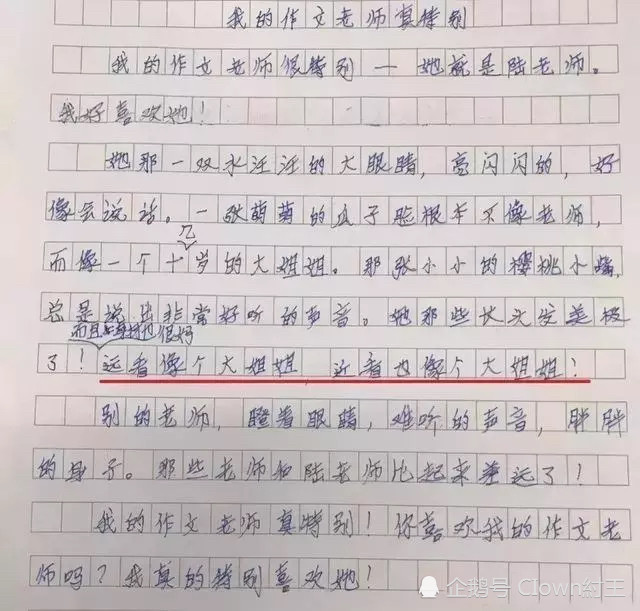 我的作文老师真特别
我的作文老师很特别一她就是陆老师。
我好喜欢她！
她那一双水汪汪的大眼睛，亮闪闪的，好
像会说话。一张萌萌的瓜子脸根本不像老师，
几
而像一个十岁的大姐姐。那张小小的樱桃小嘴，
总是说出非常好听的声音。她那些长头发美极
而且身材也很好
了！远看像个大姐姐，近看也像个大姐姐！
别的老师，瞪着眼睛，难听的声音，胖胖
的身子。那些老师和陆老师比起来差远了！
我的作文老师真特别！你喜欢我的作文老
师吗？我真的特别喜欢她！
企鹅号 Clown紅王